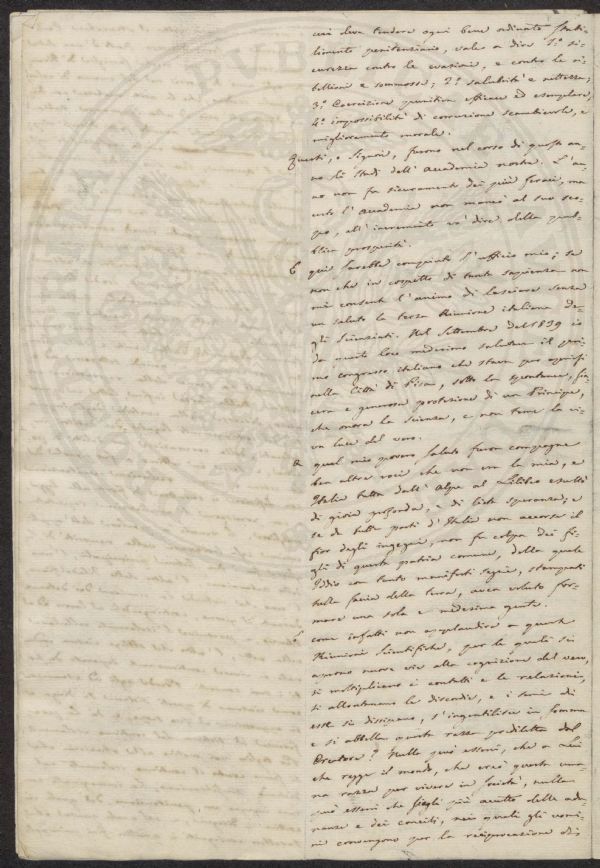 cui deve tendere ogni bene ordinato stabi-
limento penitenziario, vale a dire 1.° si-
curezza contro le evasioni, e contro le ri-
bellioni e sommosse; 2.° salubrità e nettezza;
3.° Coercizione punitiva efficace ed esemplare;
4.° impossibilità di corruzione scambievole, e
miglioramento morale.
Questi, o Signori, furono nel corso di quest'an-
no li studj dell'Accademia nostra. L'an-
no non fu sicuramente dei più feraci, ma
certo l'Accademia non mancò al suo sco-
po, all'incremento vo' dire della pub-
blica prosperità.
E qui sarebbe compiuto l'ufficio mio; se
non che in cospetto di tanta sapienza non
mi consente l'animo di lasciare senza
un saluto la terza Riunione italiana de-
gli Scienziati. Nel Settembre del 1839 io
da questo loco medesimo salutava il pri-
mo congresso italiano che stava per aprirsi
nella Città di Pisa, sotto la spontanea, sin-
cera e generosa protezione di un Principe,
che onora la Scienza, e non teme la vi-
va luce del vero.
A quel mio povero saluto furon compagne
ben altre voci che non era la mia, e
Italia tutta dall'Alpe al Lilibeo esultò
di gioia profonda, e di liete speranze; e
se da tutte parti d'Italia non accorse il
fior degli ingegni, non fu colpa dei fi-
gli di questa patria comune, della quale
Iddio con tanto manifesti segni, stampati
sulla faccia della terra, avea voluto for-
mare una sola e medesima gente.
E come infatti non applaudire a queste
Riunioni scientifiche, per le quali si
aprono nuove vie alla cognizione del vero,
si moltiplicano i contatti e le relazioni,
si allontanano le discordie, e i semi di
esse si dissipano, s'ingentilisce in somma
e si abbella questa razza prediletta dal
Creatore? Nulla può essere, che a Lui
che regge il mondo, che creò questa uma-
na razza per vivere in società, nulla
può essere che fosse più accetto delle adu-
nanze e dei concilj, nei quali gli uomi-
ni convengono per la reciprocazione di